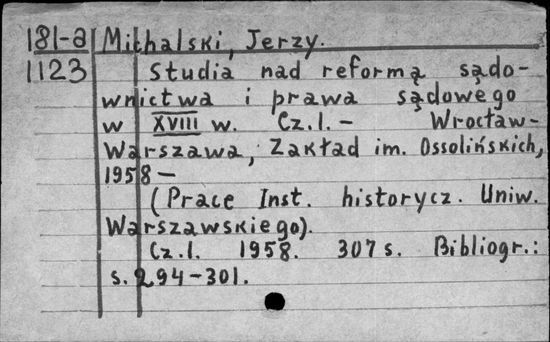 181-a Michalski, Jerzy.
1123 Studia nad reformą sądo-
wnictwa i prawa sądowego
w XVIII w. Cz.I. - Wrocław-
Warszawa, Zakład im. Ossolińskich,
1958 -
(Prace Inst. historycz. Uniw.
Warszawskiego).
Cz.I. 1958. 307 s. Bibliogr.:
s. 294-301.